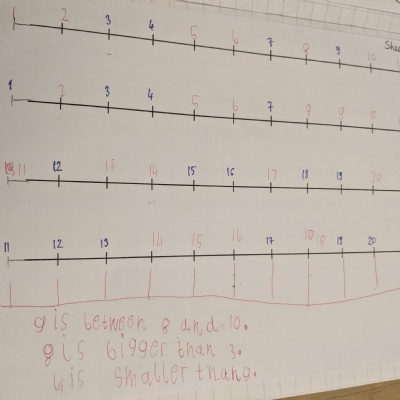 1 2 3 4 5 6 7 8 9 10
1 2 3 4 5 6 7 8 9 10
11 12 13 14 15 16 17 18 19 20
11 12 13 14 15 16 17 18 19 20
9 is between 8 and 10.
8 is bigger than 3.
4 is smaller than 9.